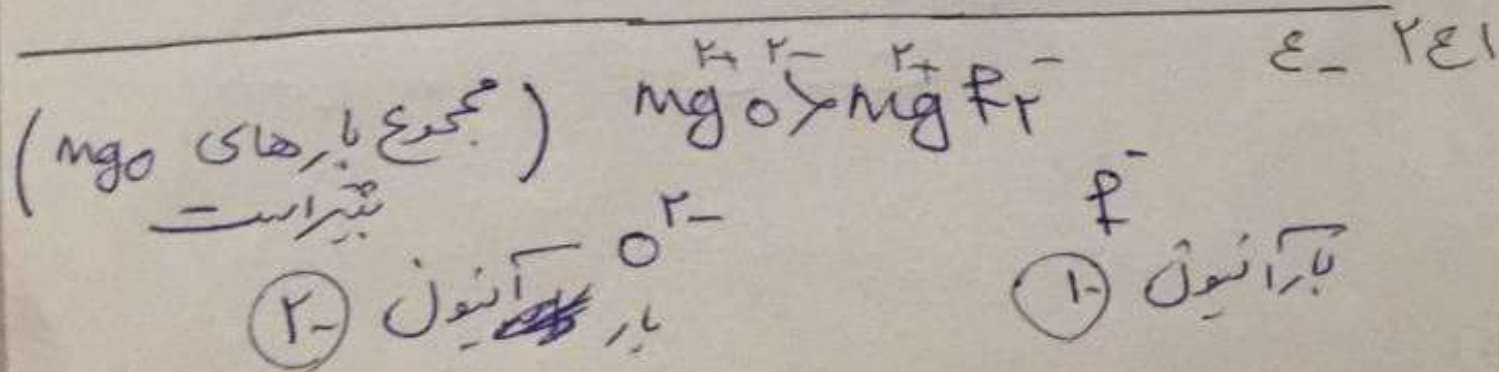 ۲۴۱ - ۴ Mg²⁺O²⁻ > Mg²⁺F₂⁻ (مجموع بارهای MgO
بیشتر است)
F⁻ O²⁻
بار آنیون (-۱) بار آنیون (-۲)